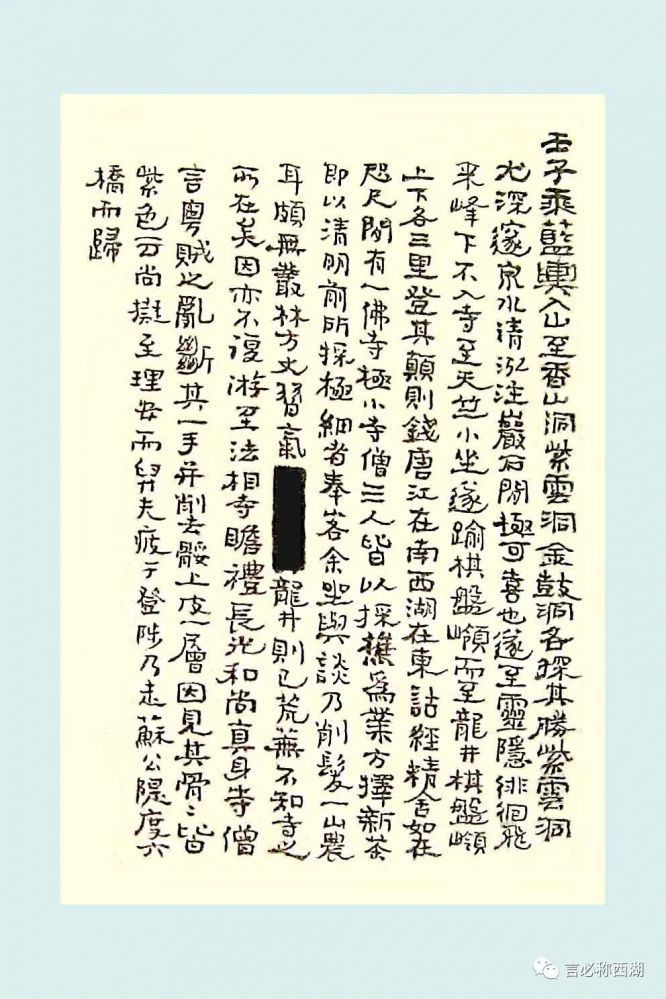 壬子乘藍輿入山至香山洞紫雲洞金鼓洞各探其勝紫雲洞
尤深邃泉水清泓注巖石間極可喜也遂至靈隱徘徊飛
来峰下不入寺至天竺小坐遂踰棋盤嶺而至龍井棋盤嶺
上下各三里登其顛則錢唐江在南西湖在東詁經精舍如在
咫尺間有一佛寺極小寺僧三人皆以採樵為業方擇新茶
即以清明前所採極細者奉客余與談乃削髮一山農
耳頗無叢林方丈習氣龍井則已荒蕪不知寺之
所在矣因亦不復游至法相寺瞻禮長耳和尚真身寺僧
言粵賊之亂斷其一手并削去骽上皮一層因見其骨〻皆
紫色云尚擬至理安而舁夫疲于登陟乃走蘇公隄度六
橋而歸
言必称西湖